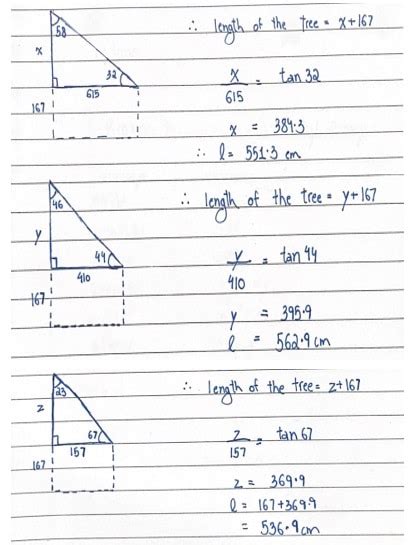 58
∴ length of the tree = x+167
x
32
x/615 = tan 32
615
167
x = 384.3
∴ l = 551.3 cm
46
∴ length of the tree = y+167
y
44
y/410 = tan 44
410
167
y = 395.9
l = 562.9 cm
23
∴ length of the tree = z+167
z
67
z/157 = tan 67
157
167
z = 369.9
l = 167+369.9
= 536.9 cm